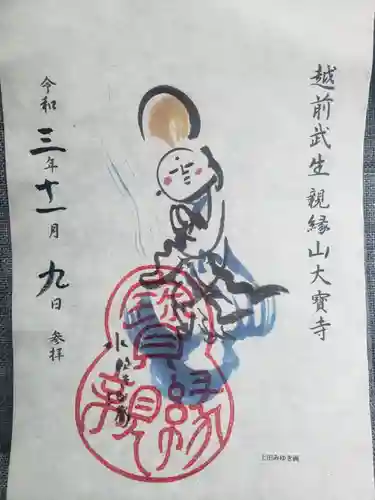 越前武生 親縁山大寶寺
寶
親縁
令和三年十一月九日 参拝
上田みゆき画